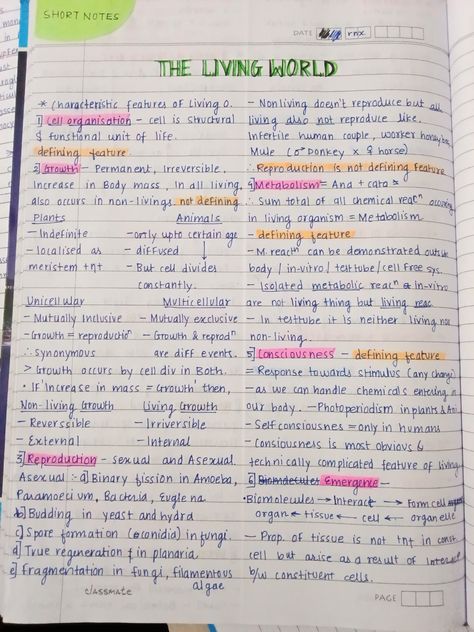 SHORT NOTES
DATE
rnx
THE LIVING WORLD
* Characteristic features of Living O.
1] Cell organisation - cell is structural
& functional unit of life.
defining feature
2] Growth - Permanent, Irreversible.
Increase in Body mass, In all living,
also occurs in non-livings, not defining
Plants Animals
- Indefinite - only upto certain age
- localised as - diffused
meristem tnt - But cell divides
constantly.
Unicellular Multicellular
- Mutually Inclusive - Mutually exclusive
- Growth = reproductiⁿ - Growth & reprodⁿ
∴ Synonymous are diff events.
> Growth occurs by cell div in Both.
• If 'increase in mass = Growth' then,
Non-living Growth Living Growth
- Reverssible - Irriversible
- External - Internal
3] Reproduction - sexual and Asexual.
Asexual :- a] Binary fission in Amoeba,
Paramoecium, Bacteria, Euglena
b] Budding in yeast and hydra
c] Spore formation (conidia) in fungi.
d] True regeneration in planaria
e] Fragmentation in fungi, filamentous
algae
- Nonliving doesn't reproduce but all
living also not reproduce like.
Infertile human couple, worker honeybee,
Mule (♂ Donkey x ♀ horse)
∴ Reproduction is not defining Feature
4] Metabolism = Ana + cata
∴ Sum total of all chemical reacⁿ occuring
in living organism = Metabolism
- defining feature
- M reacⁿ can be demonstrated outside
body / in-vitro / testtube / cell Free sys.
- Isolated metabolic reacⁿ in-vitro
are not living thing but living reac
- In testtube it is neither living nor
non-living.
5] Consciousness - defining feature
= Response towards stimulus (any change)
- as we can handle chemicals entering in
our body. - Photoperiodism in plants &
- Self consiousness = only in humans
- Consiousness is most obvious &
technically complicated feature of living
6] Biomolecules Emergence -
• Biomolecules → Interact → Form cell
organ ← tissue ← cell ← organelle
- Prop. of tissue is not tnt in const.
cell but arise as a result of
b/w constituent cells.
classmate
PAGE